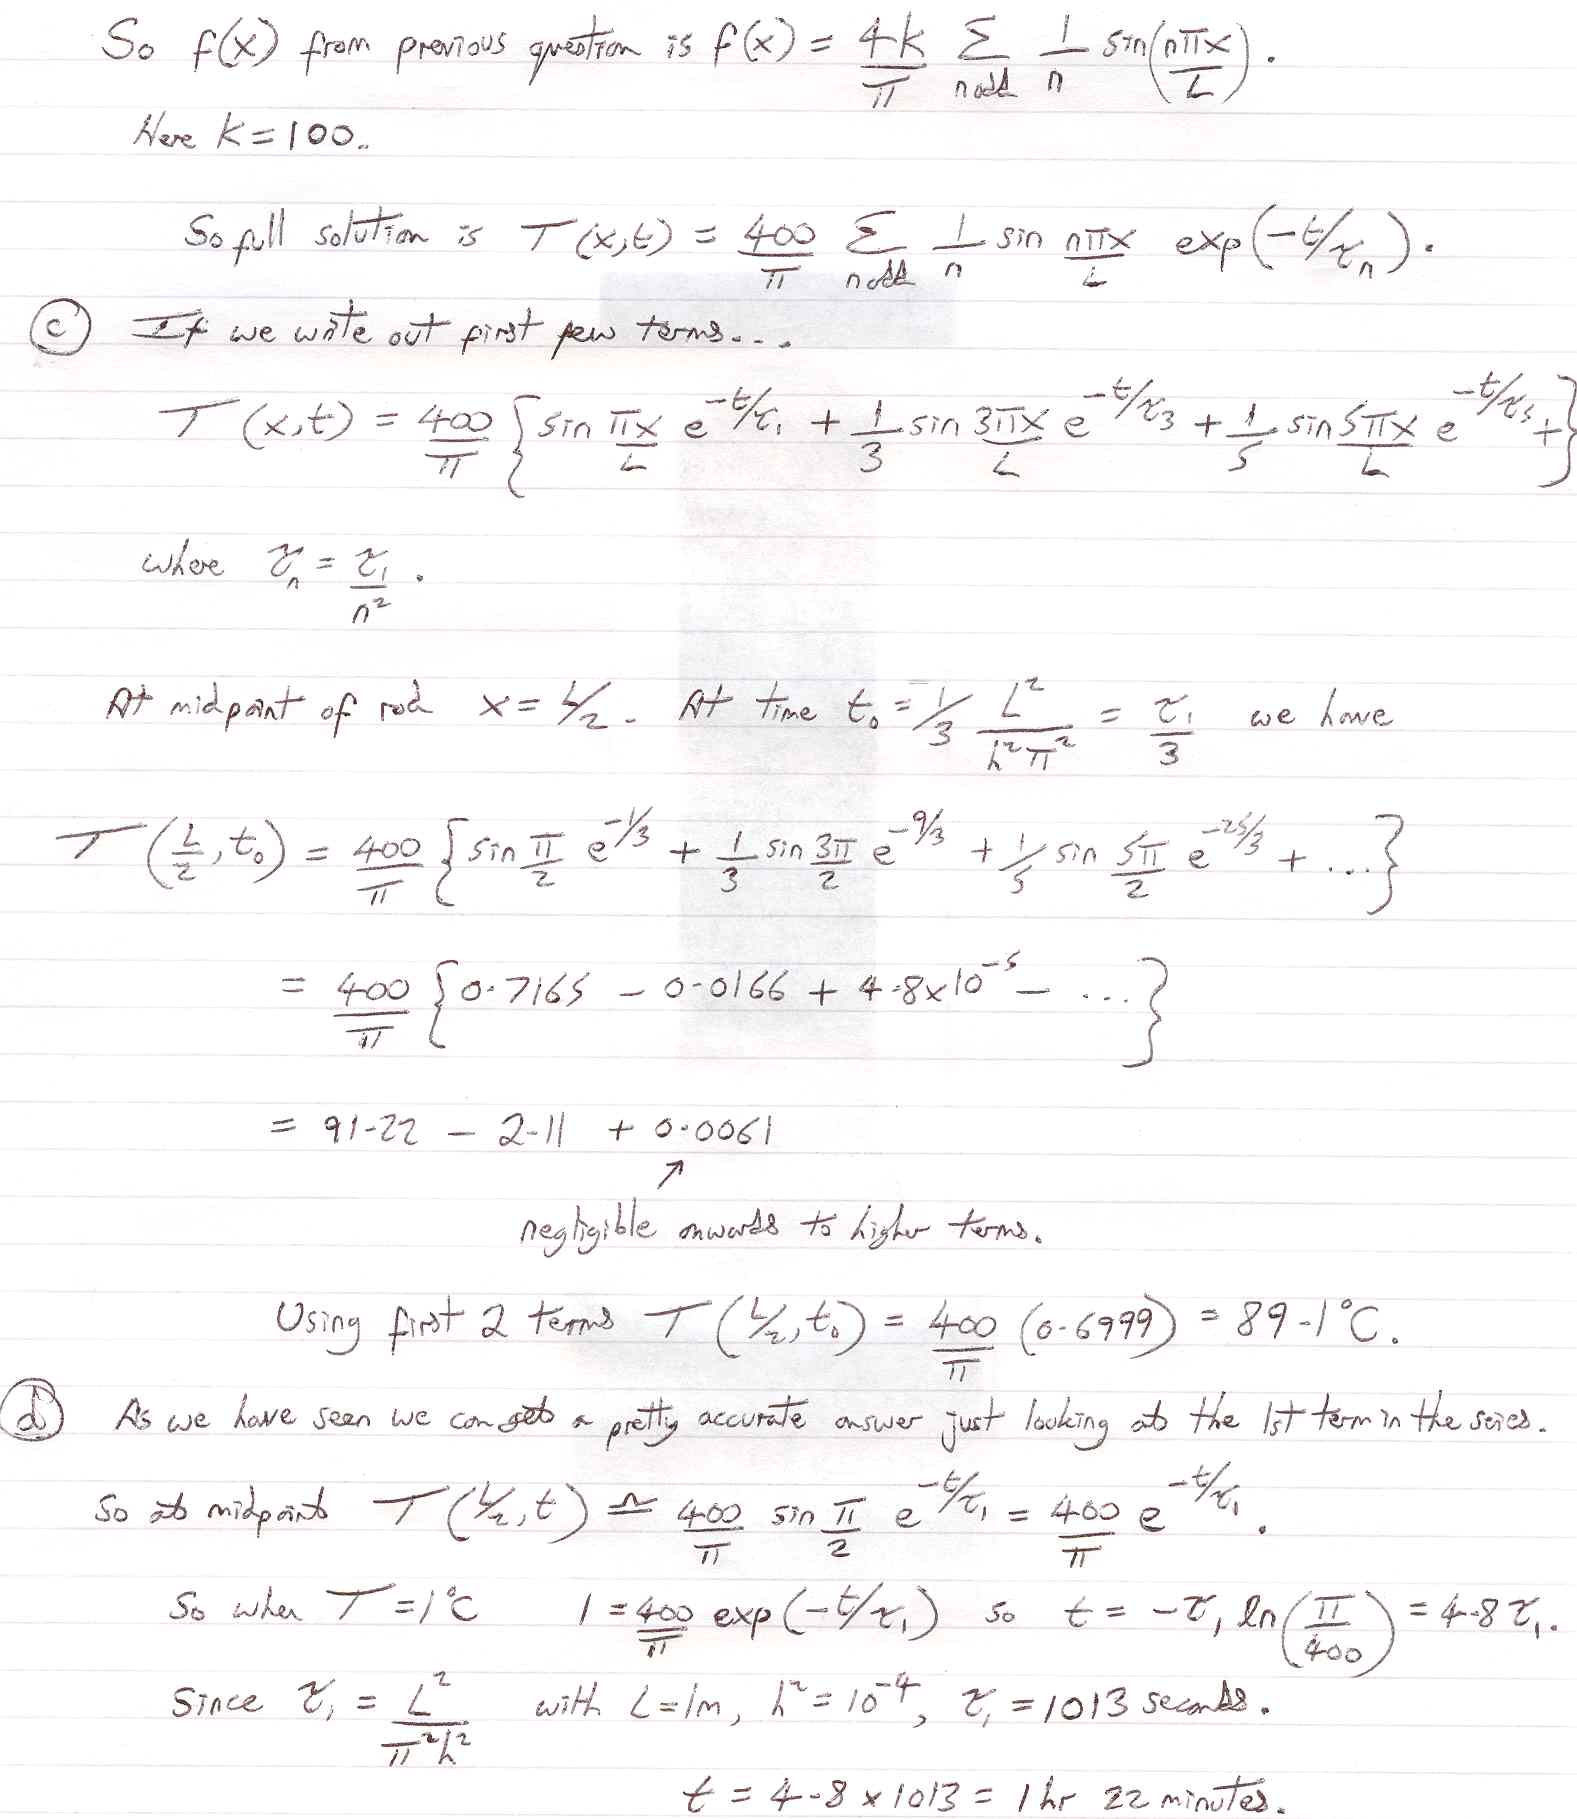 So f(x) from previous question is f(x) = 4k/π Σ_{n odd} 1/n sin(nπx/L).
Here k = 100..
So full solution is T(x,t) = 400/π Σ_{n odd} 1/n sin nπx/L exp(-t/τ_n).
(c) If we write out first few terms...
T(x,t) = 400/π { sin πx/L e^{-t/τ_1} + 1/3 sin 3πx/L e^{-t/τ_3} + 1/5 sin 5πx/L e^{-t/τ_5} + }
where τ_n = τ_1/n².
At midpoint of rod x = L/2. At time t_0 = 1/3 L²/h²π² = τ_1/3 we have
T(L/2, t_0) = 400/π { sin π/2 e^{-1/3} + 1/3 sin 3π/2 e^{-9/3} + 1/5 sin 5π/2 e^{-25/3} + ... }
= 400/π { 0.7165 - 0.0166 + 4.8x10^{-5} - ... }
= 91.22 - 2.11 + 0.0061
↗
negligible onwards to higher terms.
Using first 2 terms T(L/2, t_0) = 400/π (0.6999) = 89.1°C.
(d) As we have seen we can get a pretty accurate answer just looking at the 1st term in the series.
So at midpoint T(L/2, t) ≃ 400/π sin π/2 e^{-t/τ_1} = 400/π e^{-t/τ_1}.
So when T = 1°C 1 = 400/π exp(-t/τ_1) so t = -τ_1 ln(π/400) = 4.8 τ_1.
Since τ_1 = L²/π²h² with L = 1m, h² = 10^{-4}, τ_1 = 1013 seconds.
t = 4.8 x 1013 = 1 hr 22 minutes.